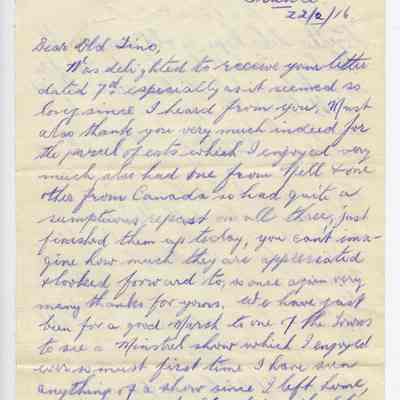 France
22/2/16.
Dear Old Tino,
Was delighted to receive your letter
dated 7th especially as it seemed so
long since I heard from you, Must
also thank you very much indeed for
the parcel of eats which I enjoyed very
much also had one from Nell & one
other from Canada so had quite a
sumptuous repast on all three, just
finished them up today, you can't ima-
gine how much they are appreciated
& looked forward to, so once again very
many thanks for yours. We have just
been for a good March to one of the towns
to see a Minstrel show which I enjoyed
first time I have seen
anything of a show since I left home,